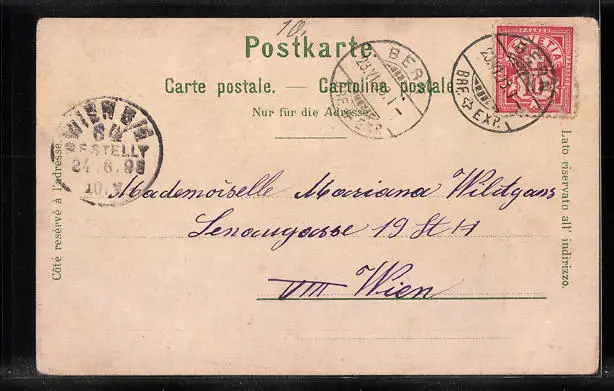 10.
Postkarte.
Carte postale. — Cartolina postale.
Nur für die Adresse.
BERN
BRF. EXP.
HELVETIA
FRANCO
10
BERN
BRF. EXP.
WIEN
BESTELLT
24.6.98
10.V
Côté réservé à l'adresse.
Lato riservato all' indirizzo.
Mademoiselle Mariana Wildgans
Lenaugasse 19 St 14
VIII Wien